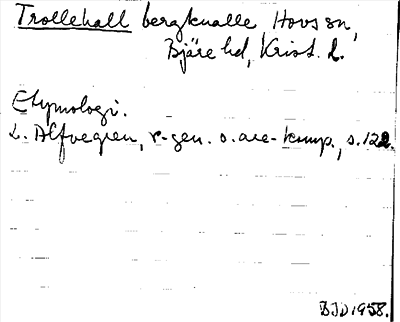 Trollehall bergknalle Hovs sn,
Bjäre hd, Krist. l.
Etymologi.
L. Alfvegren, r-gen. o. are-komp., s. 122.
BJD 1958.